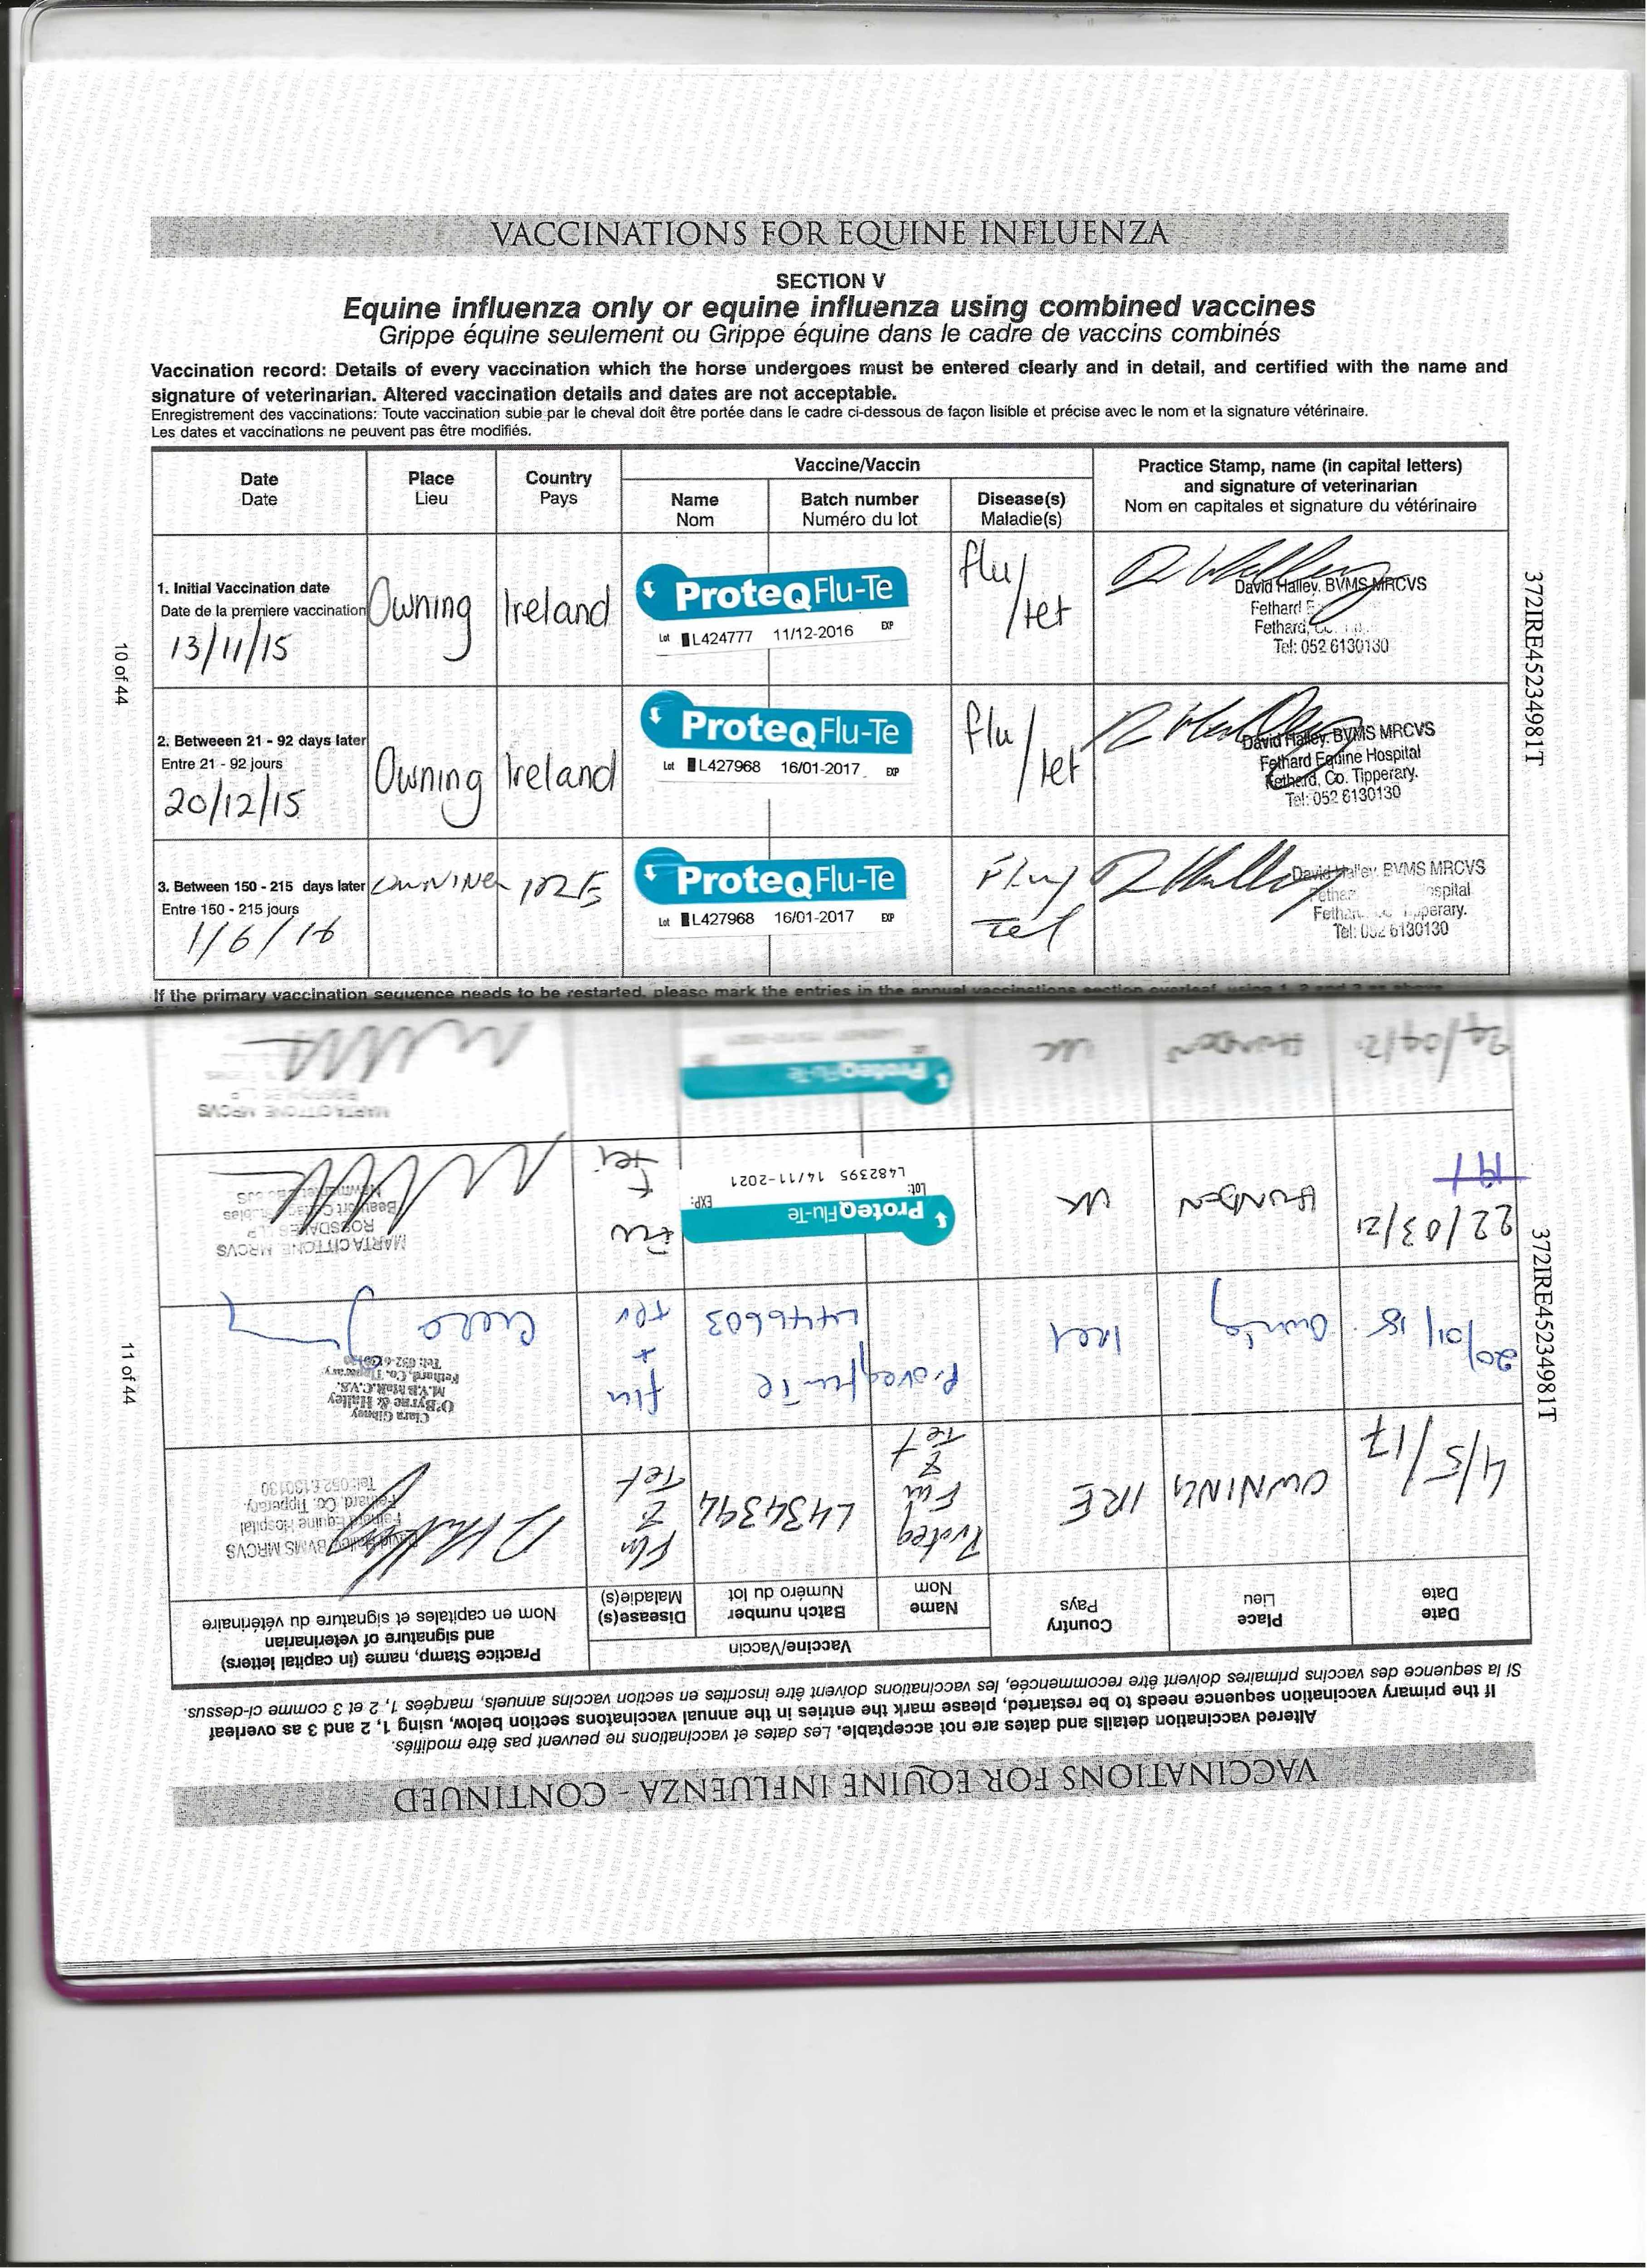 VACCINATIONS FOR EQUINE INFLUENZA
SECTION V
Equine influenza only or equine influenza using combined vaccines
Grippe équine seulement ou Grippe équine dans le cadre de vaccins combinés
Vaccination record: Details of every vaccination which the horse undergoes must be entered clearly and in detail, and certified with the name and
signature of veterinarian. Altered vaccination details and dates are not acceptable.
Enregistrement des vaccinations: Toute vaccination subie par le cheval doit être portée dans le cadre ci-dessous de façon lisible et précise avec le nom et la signature vétérinaire.
Les dates et vaccinations ne peuvent pas être modifiés.
Date
Date
Place
Lieu
Country
Pays
Vaccine/Vaccin
Name
Nom
Batch number
Numéro du lot
Disease(s)
Maladie(s)
Practice Stamp, name (in capital letters)
and signature of veterinarian
Nom en capitales et signature du vétérinaire
1. Initial Vaccination date
Date de la premiere vaccination
13/11/15
Owning
Ireland
ProteqFlu-Te
Lot L424777 11/12-2016 EXP
flu/
/tet
David Halley. BVMS MRCVS
Fethard
Fethard,
Tel: 052 6130130
2. Betweeen 21 - 92 days later
Entre 21 - 92 jours
20/12/15
Owning
Ireland
ProteqFlu-Te
Lot L427968 16/01-2017 EXP
flu/
/tet
David Halley. BVMS MRCVS
Fethard Equine Hospital
Fethard, Co. Tipperary.
Tel: 052 6130130
3. Between 150 - 215 days later
Entre 150 - 215 jours
1/6/16
OWNING
IRE
ProteqFlu-Te
Lot L427968 16/01-2017 EXP
Flu/
Tet
David Halley. BVMS MRCVS
Hospital
Tipperary.
Tel: 052 6130130
If the primary vaccination sequence needs to be restarted, please mark the entries in the annual vaccinations section overleaf, using 1, 2 and 3 as above
10 of 44
372IRE45234981T
VACCINATIONS FOR EQUINE INFLUENZA - CONTINUED
Altered vaccination details and dates are not acceptable. Les dates et vaccinations ne peuvent pas être modifiés.
If the primary vaccination sequence needs to be restarted, please mark the entries in the annual vaccinatons section below, using 1, 2 and 3 as overleaf
Si la sequence des vaccins primaires doivent être recommencée, les vaccinations doivent être inscrites en section vaccins annuels, marqées 1, 2 et 3 comme ci-dessus.
Date
Date
Place
Lieu
Country
Pays
Vaccine/Vaccin
Name
Nom
Batch number
Numéro du lot
Disease(s)
Maladie(s)
Practice Stamp, name (in capital letters)
and signature of veterinarian
Nom en capitales et signature du vétérinaire
4/5/17
OWNING
IRE
Proteq
Flu
&
Tet
L434394
Flu
&
Tet
BVMS MRCVS
Fethard Equine Hospital
Fethard, Co. Tipperary.
Tel: 052 6130130
20/01/18.
Owning
Irel
Proteqflu Te
L446603
flu
+
tet
Ciara Gibney
O'Byrne & Halley
M.V.B MRC.V.S.
Fethard, Co. Tipperary
22/03/21
HUNDON
UK
ProteqFlu-Te
Lot: EXP:
L482395 14/11-2021
MARTA CITTONE MRCVS
ROSSDALES LLP
Beaufort Cottage Stables
UK
ProteqFlu-Te
MARTA CITTONE MRCVS
11 of 44
372IRE45234981T